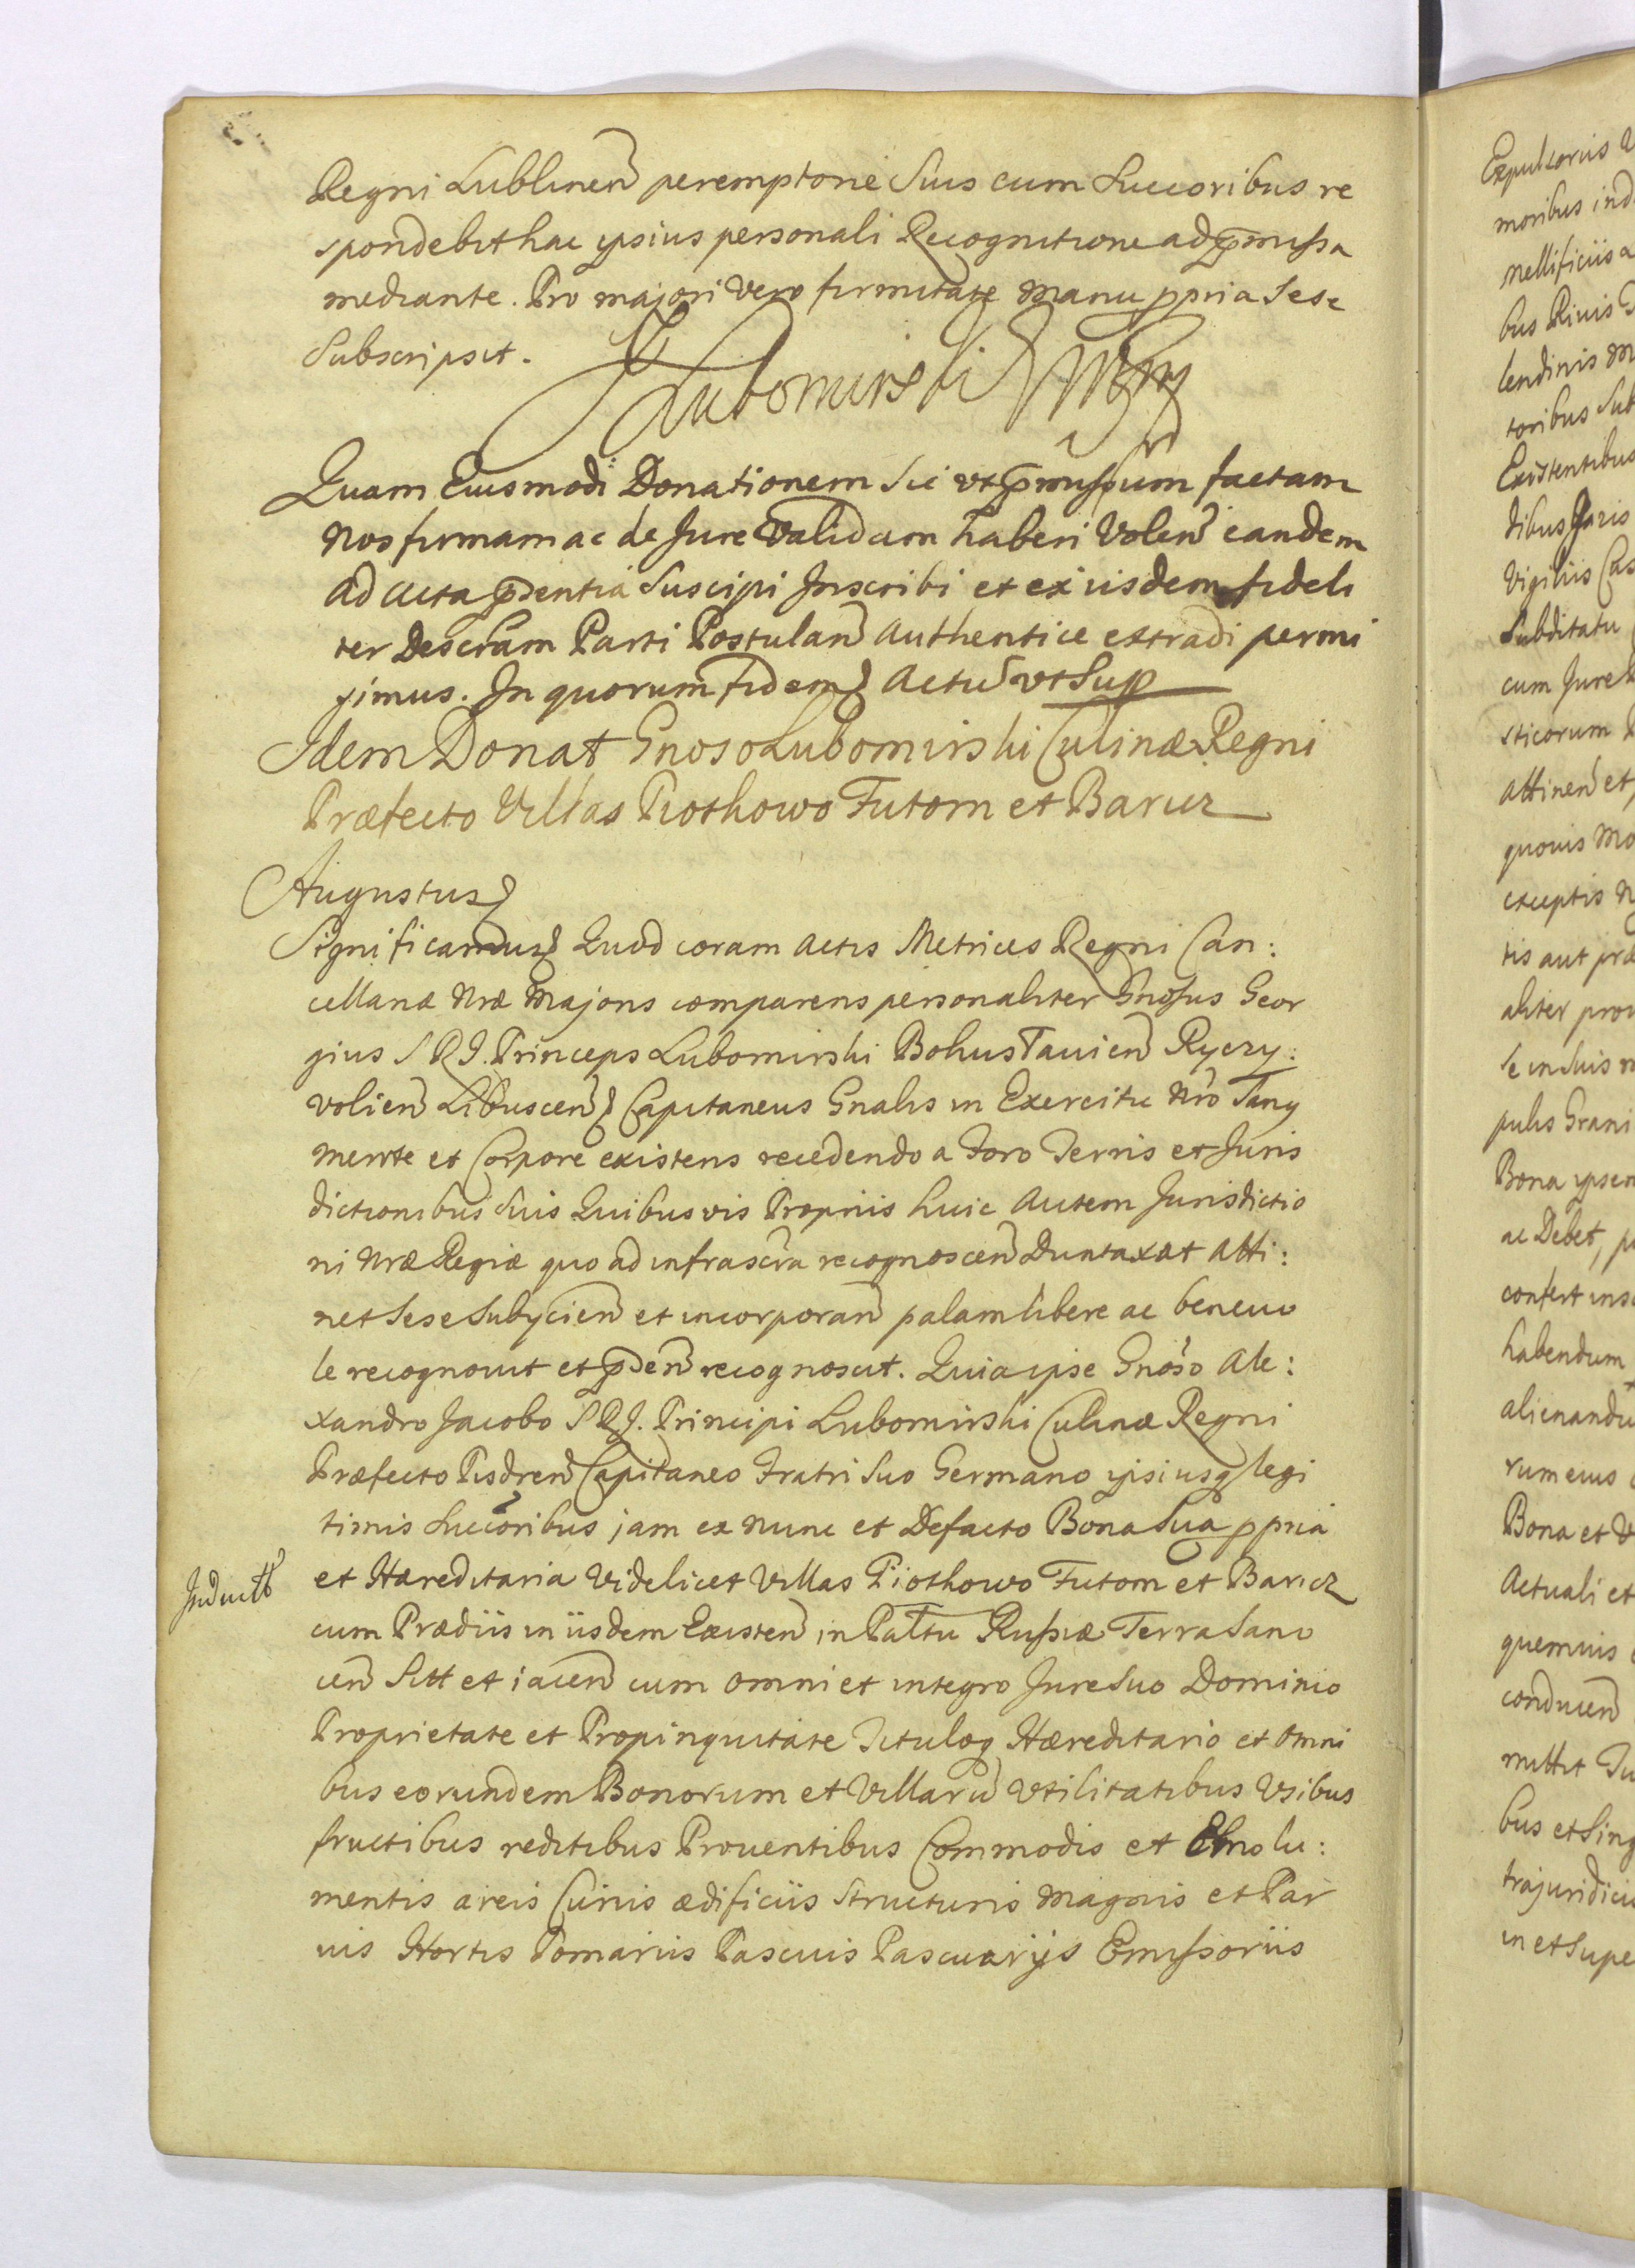 Regni Lublinen peremptorie Suis cum Succoribus re
spondebit hac ipsius personali Recognitione ad pmissa
mediante. Pro majori vero firmitate manu ppria Sese
Subscripsit.
Lubomirski
Quam Eiusmodi Donationem Sic vt pmissum factam
Nos firmam ac de Jure Validam haberi Volen eandem
ad Acta pdentia Suscipi Inscribi et ex iisdem fideli
ter Descram Parti Postulan Authentice extradi permi
simus. In quorum fidem Actu vt Sup
Idem Donat Gnoso Lubomirski Culinæ Regni
Præfecto Villas Piotkowo Futom et Baricz
Augustus
Significamus Quod coram Actis Metrices Regni Can:
cellariæ Nræ Majoris comparens personaliter Gnosus Geor
gius S R I. Princeps Lubomirski Bohustauien Ryczy:
volien Libuscen Capitaneus Gnalis in Exercitu Nro Sanq
mente et Corpore existens recedendo a Foro Terris et Juris
dictionibus Suis Quibusvis Propriis huic Autem Jurisdictio
ni Nræ Regiæ quo ad infrascra recognoscen Duntaxat Atti:
net Sese Subycien et incorporan palam libere ac beneuo
le recognouit et pden recognoscit. Quia ipse Gnoso Ale:
xandro Jacobo S R I. Principi Lubomirski Culinæ Regni
Præfecto Pisdren Capitaneo Fratri Suo Germano ipsiusq legi
timis Succoribus jam ex nunc et Defacto Bona Sua ppria
et Hæreditaria Videlicet Villas Piotkowo Futom et Baricz
Inductt
cum Prædiis in iisdem Existen in Paltu Russiæ Terra Sano
cen Sitt et iacen cum omni et integro Jure Suo Dominio
Proprietate et Propinquitate Tituloq Hæreditario et Omni
bus eorundem Bonorum et Villaru Vtilitatibus Vsibus
fructibus reditibus Prouentibus Commodis et Emolu:
mentis areis Curiis ædificiis Structuris Magnis et Par
uis Hortis Pomariis Pascuis Pascuarijs Emissoriis
Expulsoriis
moribus ind
mellificiis a
bus Riuis
lendinis M
toribus Sub
Existentibus
dibus
Vigiliis Cas
Subditatu
cum Jure
sticorum
attinen et
quouis Mo
exceptis N
tis aut præ
aliter prou
Se in Suis
pulis Grani
Bona ipsen
ac Debet, p
confert ins
habendum
alienandu
rum eius
Bona et
Actuali et
quemuis
conducen
mittit In
bus et Sing
trajuridicis
in et Supe